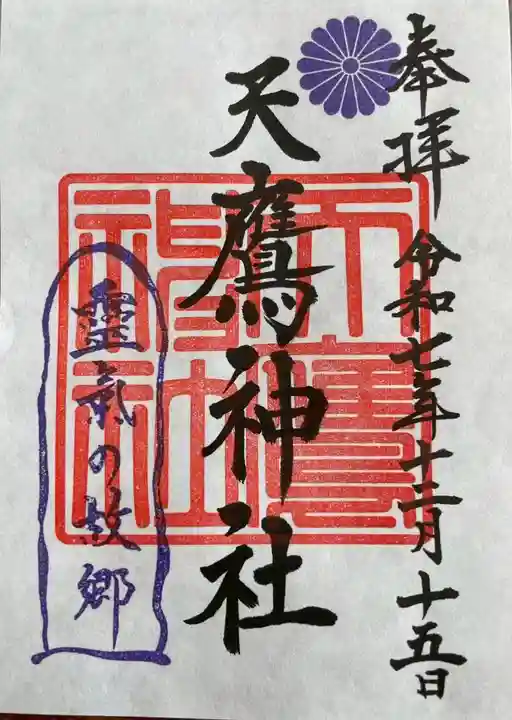 奉拝
令和七年十二月十五日
天鷹神社
天鷹神社
靈氣の故郷